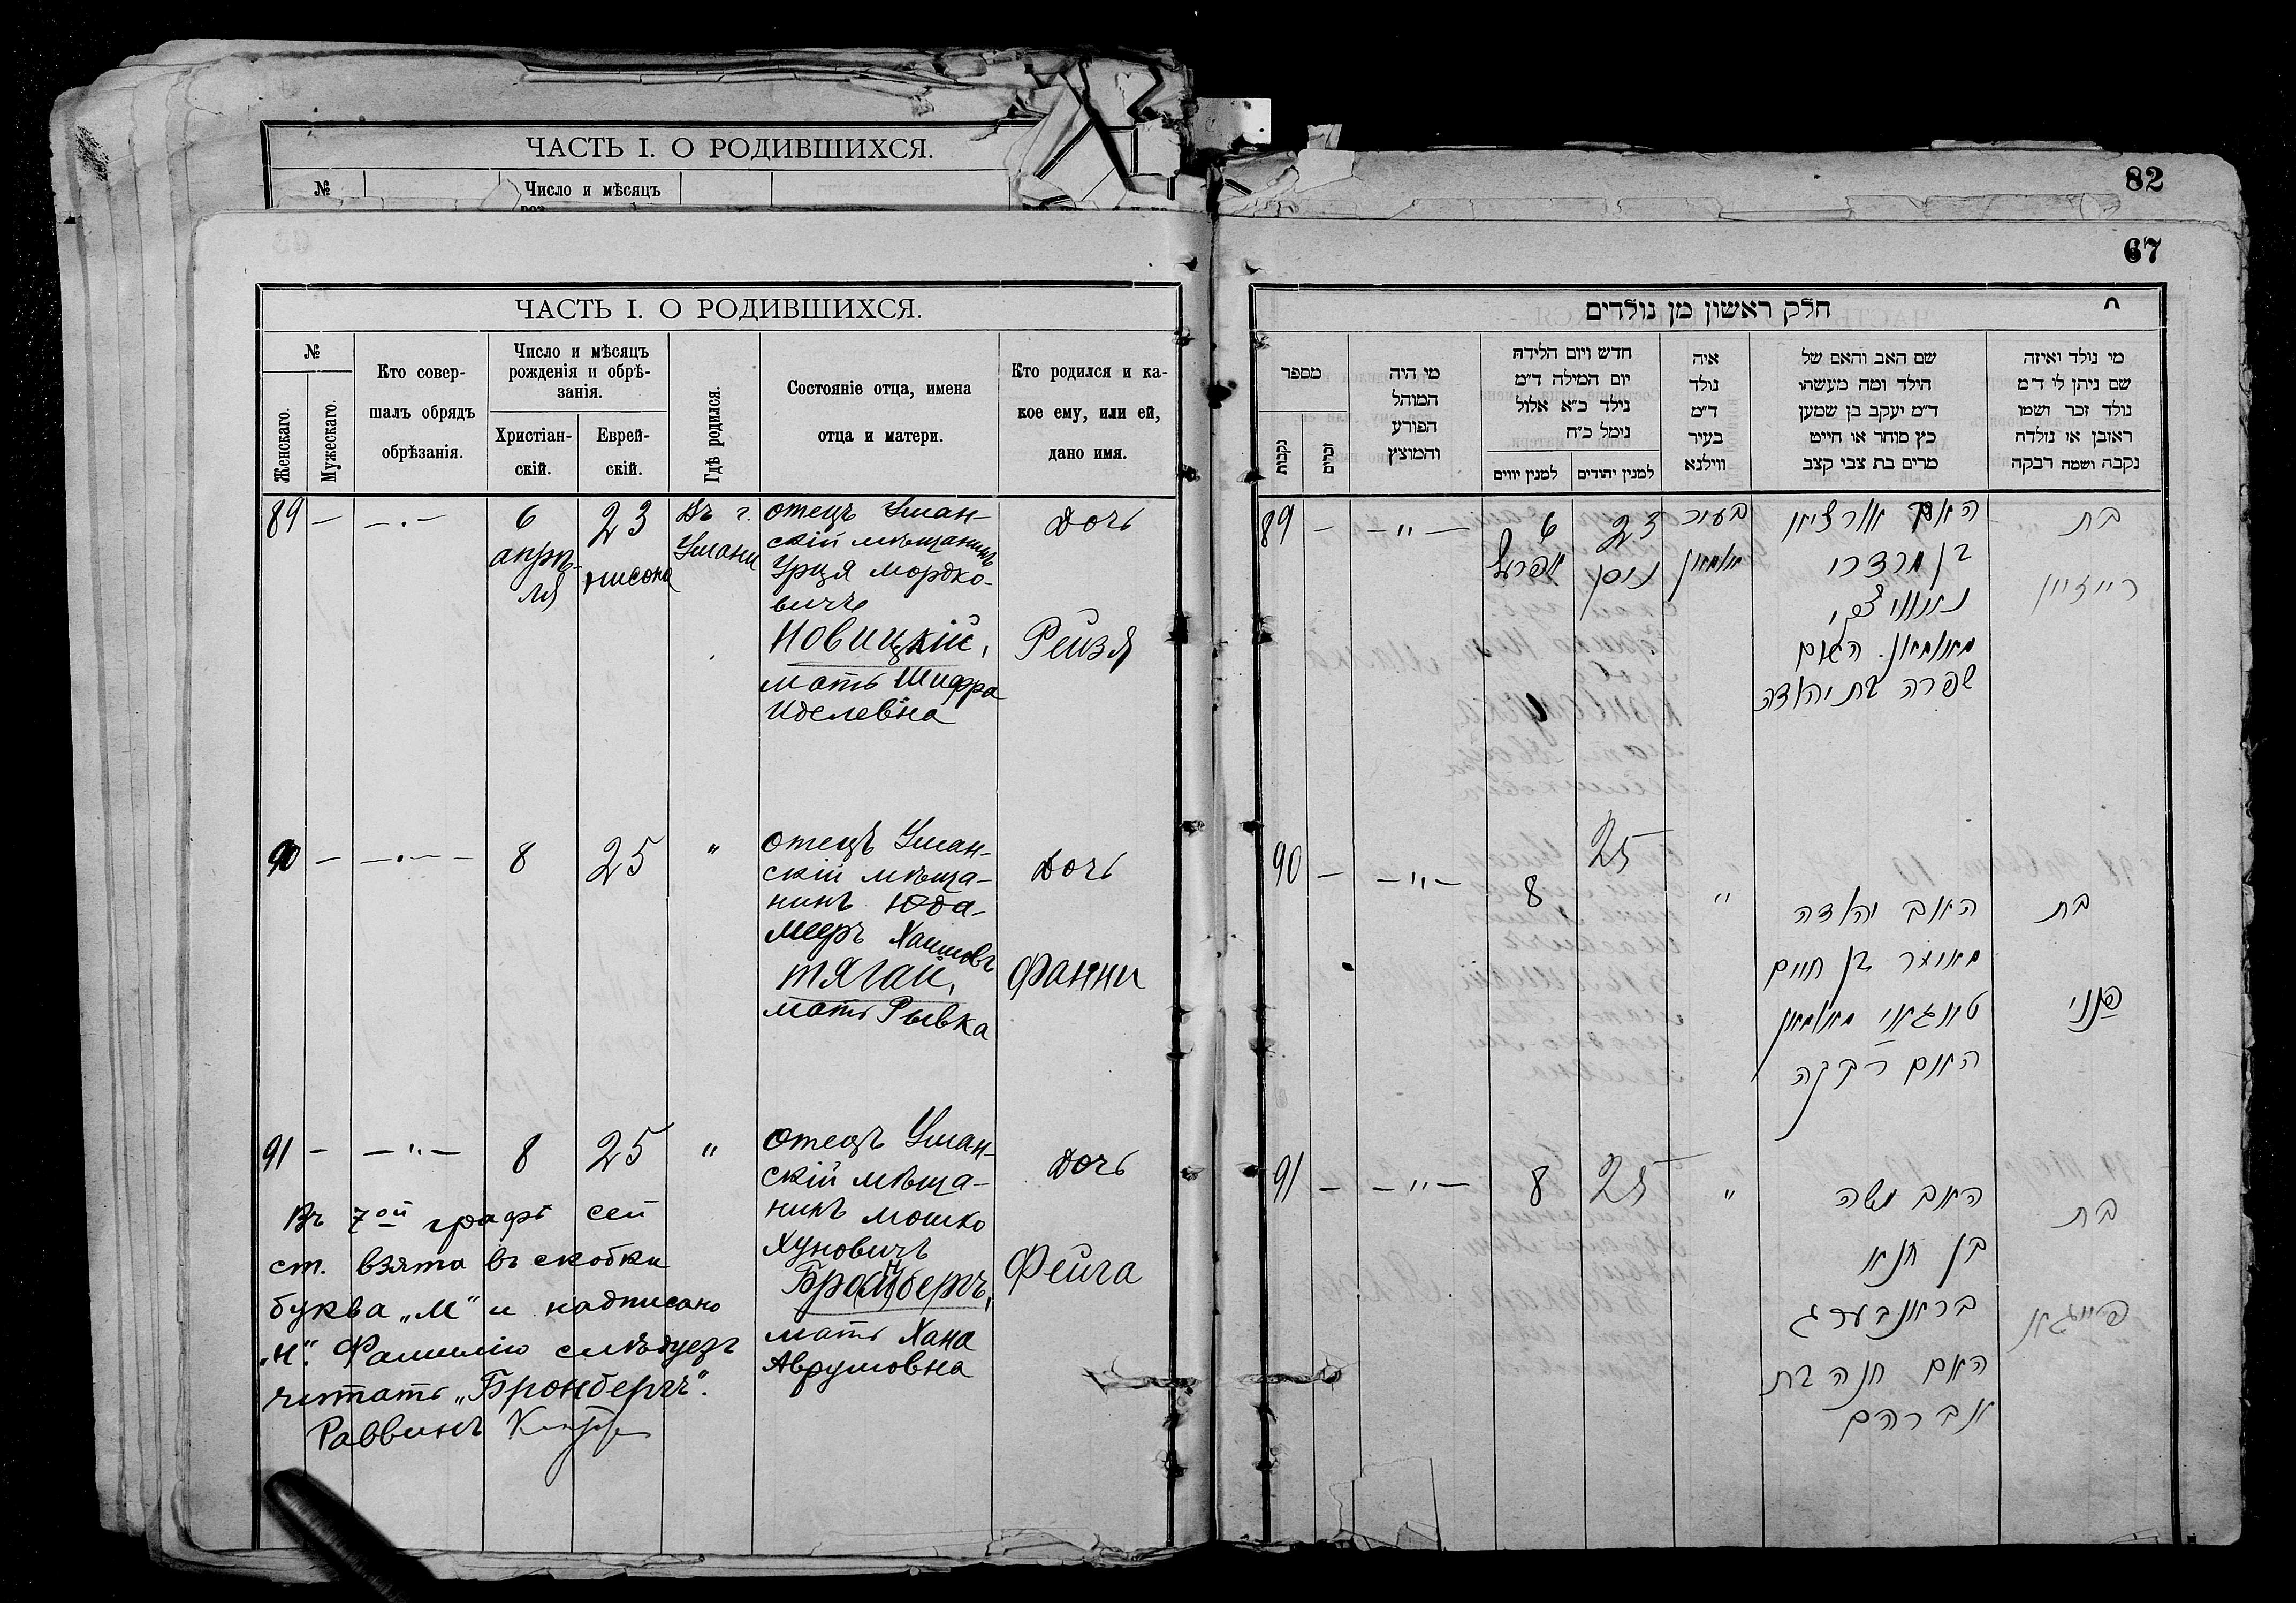 ЧАСТЬ I. О РОДИВШИХСЯ.
№
Число и мѣсяцъ
82
67
ЧАСТЬ I. О РОДИВШИХСЯ.
№
Женскаго.
Мужескаго.
Кто совер-
шалъ обрядъ
обрѣзанія.
Число и мѣсяцъ
рожденія и обрѣ-
занія.
Христіан-
скій.
Еврей-
скій.
Гдѣ родился.
Состояніе отца, имена
отца и матери.
Кто родился и ка-
кое ему, или ей,
дано имя.
89 — —.— 6 23 Въ г. отецъ Уман- Дочь
апрѣ- нисона Умани скій мѣщанинъ
ля Урця Мордко-
вичъ
Новицкій, Рейзя
мать Шифра
Иделевна
90 — —.—— 8 25 " отецъ Уман- Дочь
скій мѣща-
нинъ Юда-
Меер Хаимовъ
Тягай, Фанни
мать Рывка
91 — —"— 8 25 " отецъ Уман- Дочь
скій мѣща-
нинъ Мошко
Хуновичъ
Бро(м)нбергъ, Фейга
мать Хана
Аврумовна
Въ 7ой графѣ сей
ст. взята въ скобки
буква „М" и надписано
„Н". Фамилію слѣдуетъ
читать „Бронбергъ".
Раввинъ
חלק ראשון מן נולדים
מספר
נקבות
זכרים
מי היה
המוהל
הפורע
והמוצץ
חדש ויום הלידה
יום המילה ד"מ
נילד כ"א אלול
נימל כ"ח
למנין יווים
למנין יהודים
איה
נולד
ד"מ
בעיר
ווילנא
שם האב והאם של
הילד ומה מעשהו
ד"מ יעקב בן שמען
כץ סוחר או חייט
מרים בת צבי קצב
מי נולד ואיזה
שם ניתן לו ד"מ
נולד זכר ושמו
ראובן או נולדה
נקבה ושמה רבקה
89 — —"— 6 23 בעיר
אפריל ניסן אומאן
האב
בן מרדכי
האם
שפרה בת יהודה
בת
רייזיא
90 — —"— 8 25 "
האב יהודה
מאיר בן חיים
טאגאי מאומאן
האם רבקה
בת
פאני
91 — —"— 8 25 "
האב משה
בן חנא
בראנבערג
האם חנה בת
אברהם
בת
פייגא